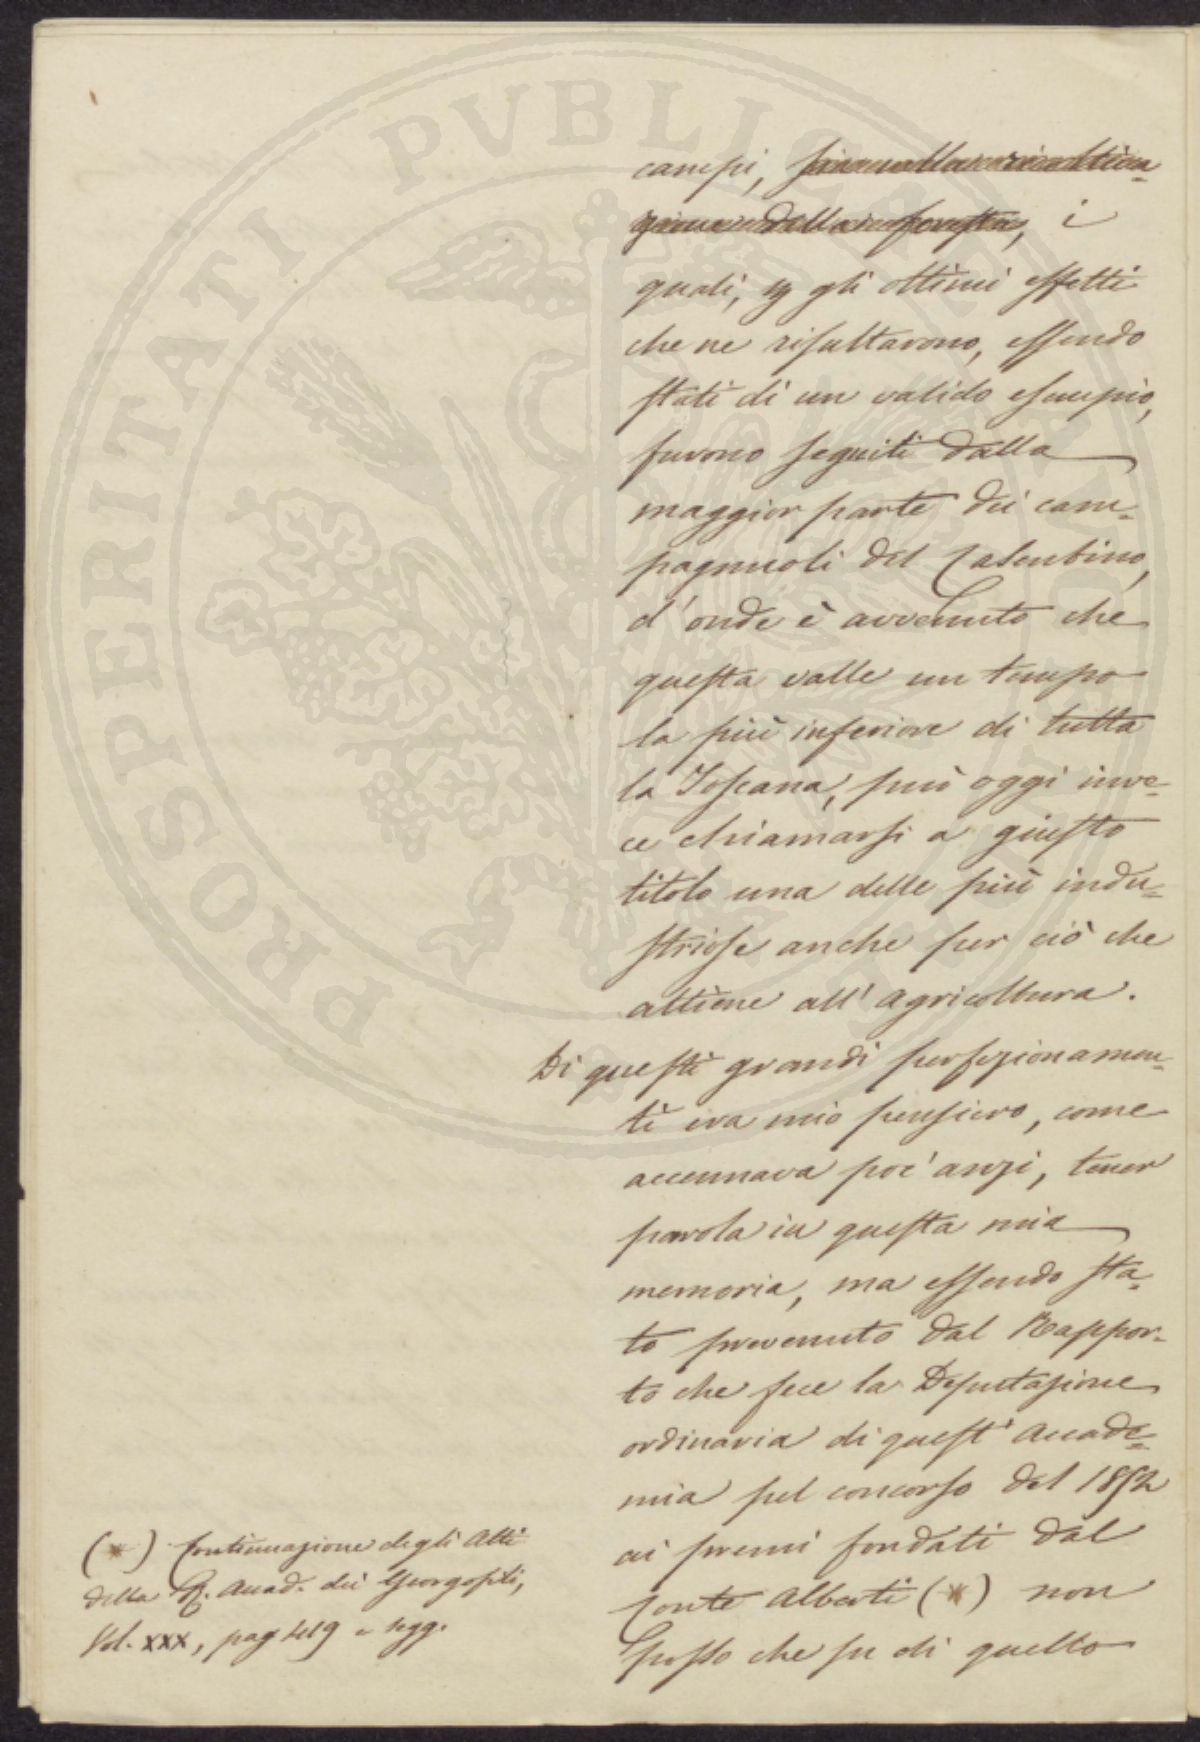 PROSPERITATI PVBLICAE AVGENDAE
campi, i
quali, p gli ottimi effetti
che ne risultarono, essendo
stati di un valido esempio,
furono seguiti dalla
maggior parte dei cam=
pagnuoli del Casentino,
d'onde è avvenuto che
questa valle un tempo
la più inferiore di tutta
la Toscana, può oggi inve=
ce chiamarsi a giusto
titolo una delle più indu=
striose anche per ciò che
attiene all'agricoltura.
Di questi grandi perfezionamen=
ti era mio pensiero, come
accennava poc'anzi, tener
parola in questa mia
memoria, ma essendo sta=
to prevenuto dal Rappor=
to che fece la Deputazione
ordinaria di quest'Accade=
mia pel concorso del 1852
ai premi fondati dal
Conte Alberti (*) non
posso che su di quello
(*) Continuazione degli Atti
della R. Accad. dei Georgofili,
Vol. XXX, pag e segg.